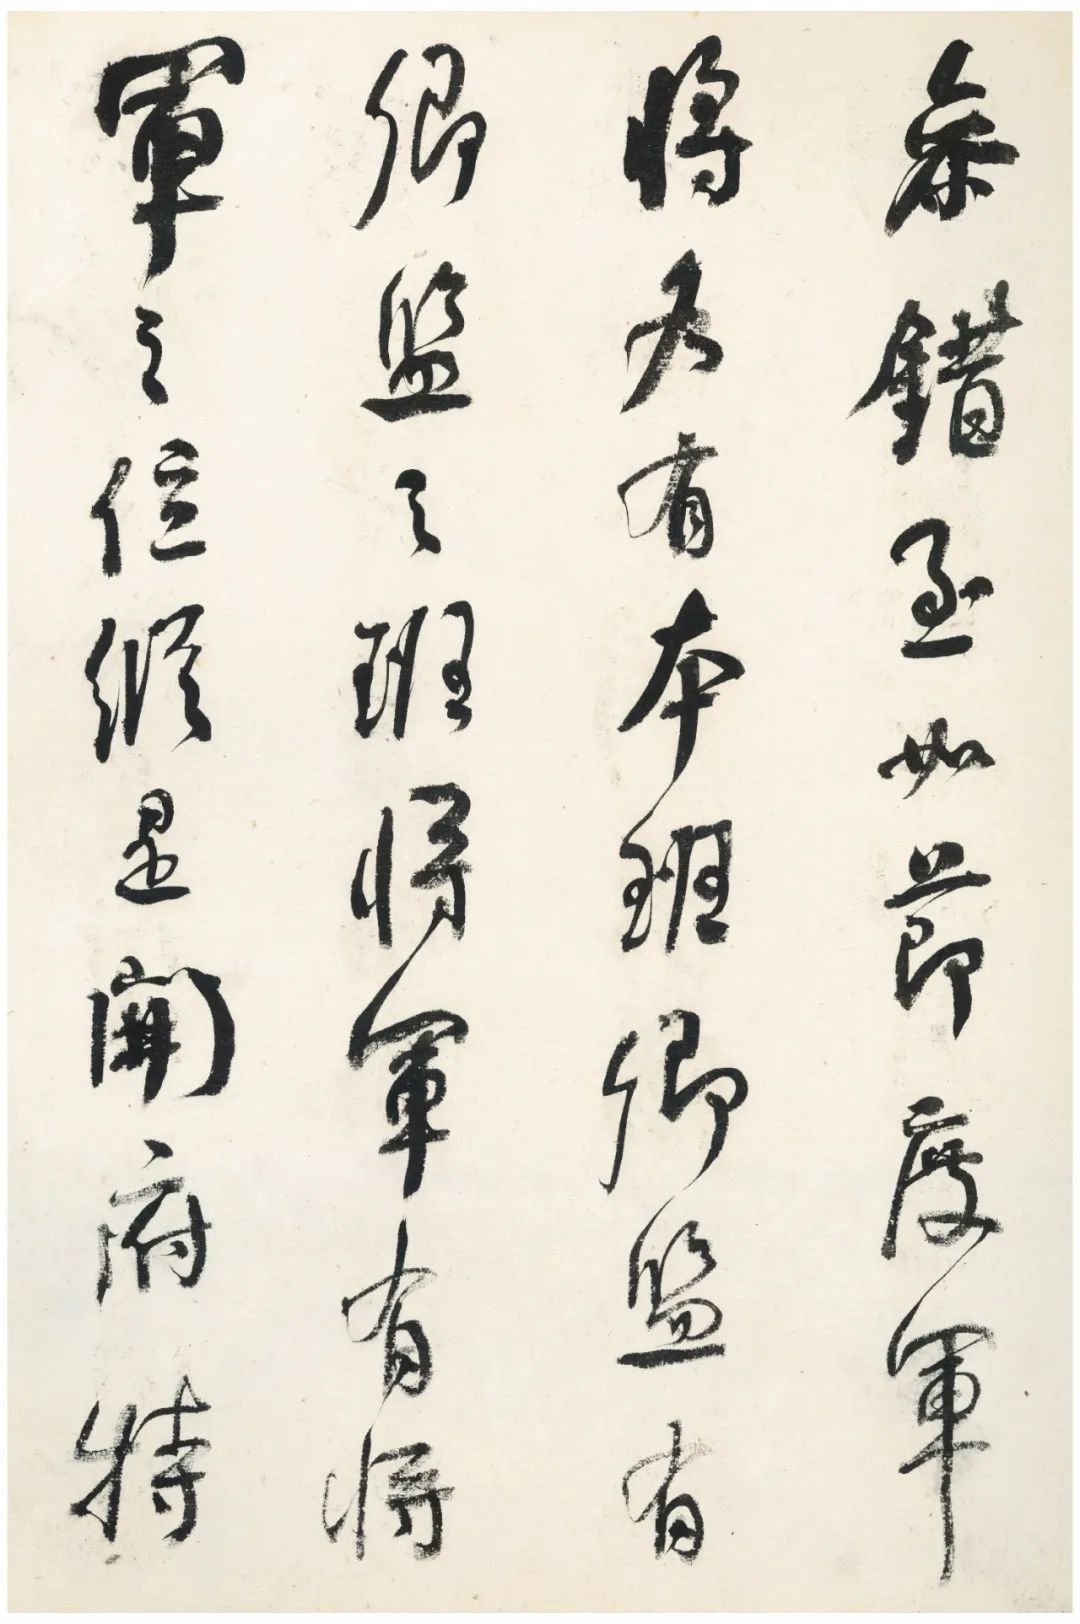 參錯至如節度軍
將各有本班卿監有
卿監之班將軍有將
軍之位縱是開府特